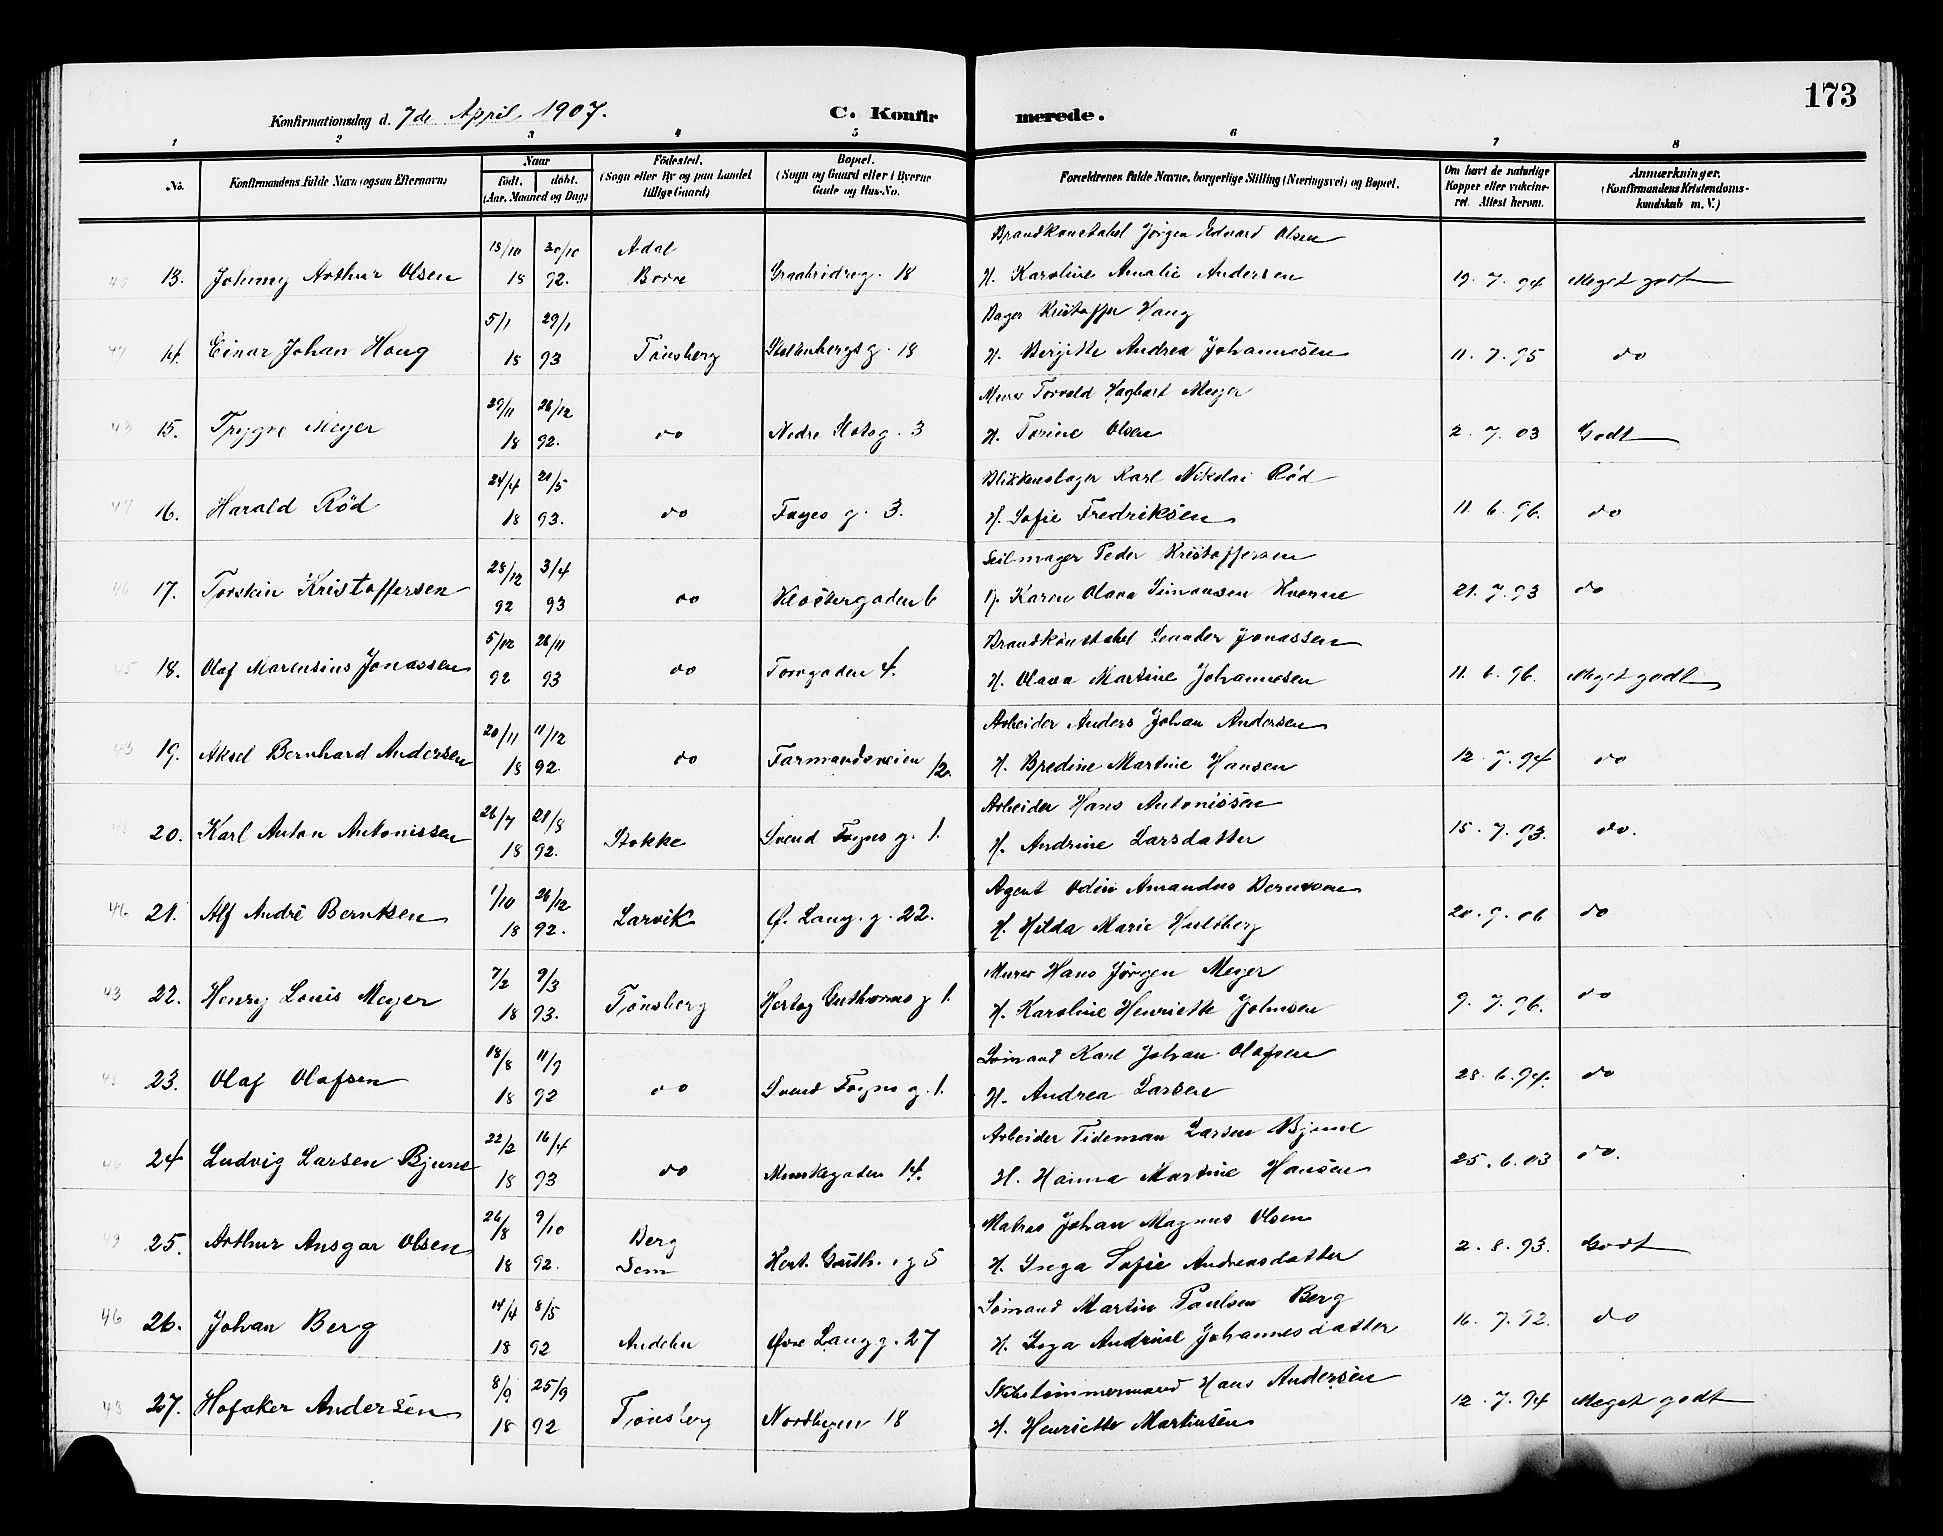 173
Konfirmationsdag d. 7de April 1907. C. Konfirmerede.
1 2 3 4 5 6 7 8
No. Konfirmandens fulde Navn (ogsaa Efternavn) Naar født. døbt. (Aar, Maaned og Dag) Fødested. (Sogn eller By og paa Landet tillige Gaard) Bopæl. (Sogn og Gaard eller i Byerne Gade og Hus-No. Forældrenes fulde Navne, borgerlige Stilling (Næringsvei) og Bopæl. Om havt de naturlige Kopper eller vakcineret. Attest herom. Anmærkninger. (Konfirmandens Kristendomskundskab m. V.)
18/10 30/10 Adal Brandkonstabel Jørgen Edvard Olsen
45 13. Johnny Arthur Olsen 18 92. Borre Graabrødreg. 18 H. Karoline Amalie Andersen 19. 7. 94 Meget godt
5/1 29/1 Bager Kristoffer Haug
47 14. Einar Johan Haug 18 93 Tønsberg Stoltenbergsg. 18 H. Bergitte Andrea Johannesen 11. 7. 95 do
29/11 26/12 Murer Torvald Hagbart Meyer
43 15. Trygve Meyer 18 92. do Nedre Slotsg. 3 H. Torine Olsen 2. 7. 03 Godt
24/4 21/5 Blikkenslager Karl Nikolai Rød
47 16. Harald Rød 18 93. do Foyns g. 3. H. Sofie Fredriksen 11. 6. 96. do
28/12 3/4 Seilmager Peder Kristoffersen
46 17. Torskin Kristoffersen 92 93 do Klostergaden 6 H. Karen Olava Simonsen Hverne 21. 7. 93 do
5/12 26/11 Brandkonstabel Leander Jonassen
45 18. Olaf Marensius Jonassen 92 93 do Torvgaden 4. H. Olava Martine Johannesen 11. 6. 96. Meget godt
20/11 11/12 Arbeider Anders Johan Andersen
43 19. Aksel Bernhard Andersen 18 92. do Farmandsveien 12. H. Bredine Martine Hansen 12. 7. 94 do
26/7 21/8 Arbeider Hans Antonissen
48 20. Karl Anton Antonissen 18 92. Stokke Svend Foyns g. 1. H. Andrine Larsdatter 15. 7. 93. do.
1/10 26/12 Agent Odin Amandus Berntsen
46 21. Alf André Berntsen 18 92. Larvik Ø. Lang. g. 22. H. Hilda Marie Hulsberg 20. 9. 06 do
7/2 9/3 Murer Hans Jørgen Meyer
43 22. Henry Louis Meyer 18 93. Tønsberg Hertog Guthorms g 1. H. Karoline Henriette Johnsen 9. 7. 96. do
18/8 11/9 Sømand Karl Johan Olafsen
48 23. Olaf Olafsen 18 92 do Svend Foyns g. 1. H. Andrea Larsen 28. 6. 94. do
22/2 16/4 Arbeider Tideman Larsen Bjune
46 24 Ludvig Larsen Bjune 18 93 do Munkegaden 14. H. Hanna Martine Hansen 25. 6. 03 do.
26/8 9/10 Berg Matros Johan Magnus Olsen
43 25. Arthur Ansgar Olsen 18 92. Sem Hert. Guth. g 5 H. Inga Sofie Andreasdatter 2. 8. 93. Godt
14/4 8/5 Sømand Martin Paulsen Berg
46 26. Johan Berg 18 92 Andebu Øvre Langg. 27 H. Inga Andrine Johannesdatter 16. 7. 92. do
8/9 25/9 Skibstømmermand Hans Andersen
43 27. Hofaker Andersen 18 92 Tønsberg Nordbyen 18 H. Henriette Martinsen 12. 7. 94 Meget godt